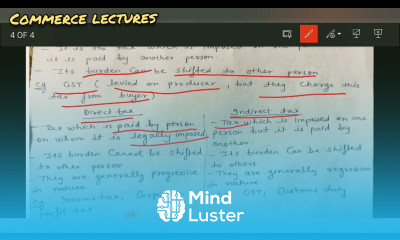 COMMERCE LECTURES
4 OF 4
- It is the tax which is imposed on one
it is paid by another person.
- Its burden can be shifted to other person.
Eg GST (levied on producer, but they charge this
tax from buyer)
Direct tax
- Tax which is paid by person
on whom it is legally imposed
- Its burden cannot be shifted
to other person
- They are generally progressive
in nature
Eg Income tax,
profit tax
Indirect tax
- Tax which is imposed on one
person but it is paid by
another.
- Its burden can be shifted
to others.
- They are generally regressive
in nature
GST, Custom duty
Mind
Luster